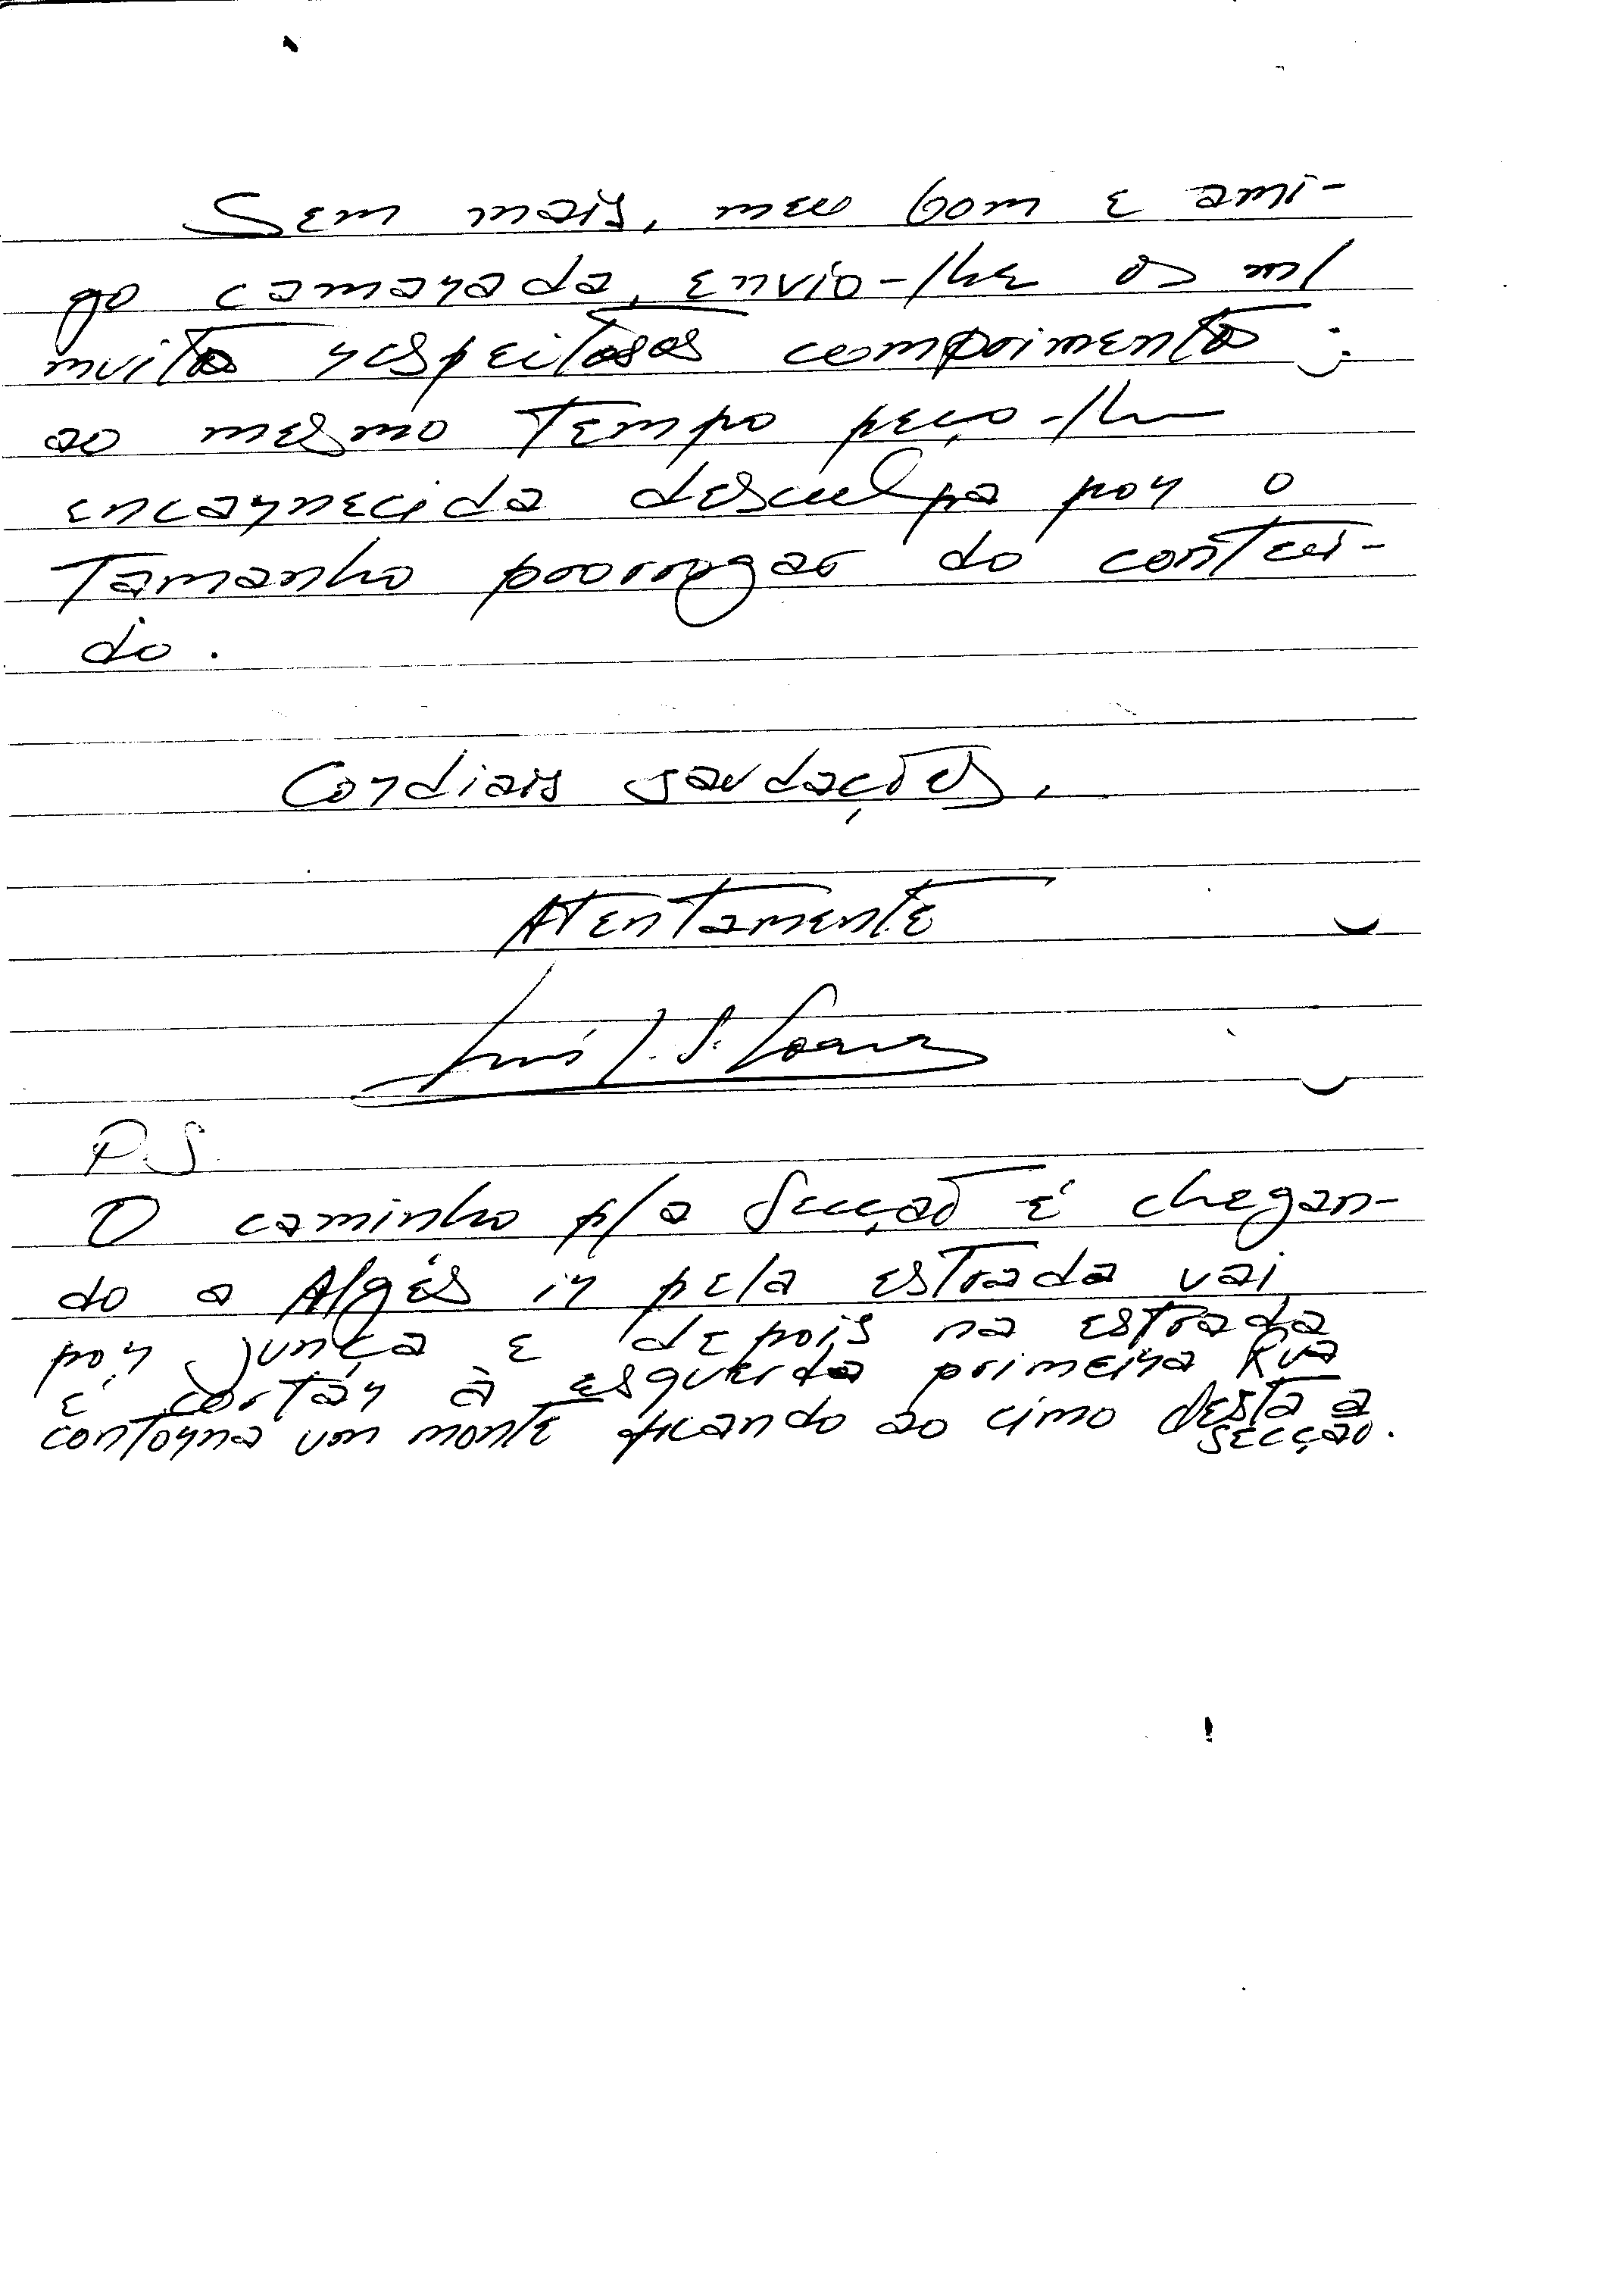 Sem mais, meu bom e ami-
go camarada, envio-lhe os m/
muito respeitosos comprimentos;
ao mesmo tempo peço-lhe
encarnecida desculpa por o
tamanho prorrogar do conteú-
do.
Cordiais saudações,
Atentamente
Luís J. S. Soares
P.S.
O caminho p/a Secção é chegan-
do a Algés ir pela estrada vai
por Junça e depois na estrada
é cortar à esquerda primeira Rua
contorna um monte ficando ao cimo desta a
secção.